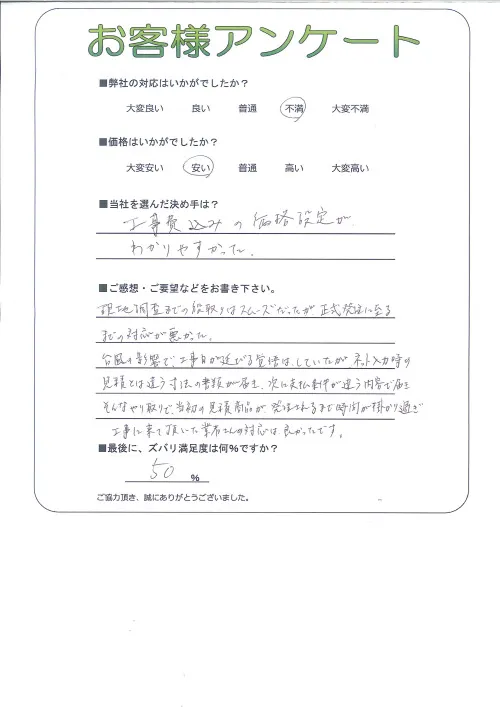 お客様アンケート
■弊社の対応はいかがでしたか？
大変良い 良い 普通 不満 大変不満
■価格はいかがでしたか？
大変安い 安い 普通 高い 大変高い
■当社を選んだ決め手は？
工事費込みの価格設定が、
わかりやすかった。
■ご感想・ご要望などをお書き下さい。
現地調査までの段取りはスムーズだったが正式発注に至る
までの対応が悪かった。
台風の影響で、工事日が延びる覚悟は、していたが ネット入力時の
見積とは違う寸法の書類が届き、次に支払条件が違う内容で届き
そんなやり取りで、当初の見積商品が発注されるまで時間が掛かり過ぎ
工事に来て頂いた業者さんの対応は、良かったです。
■最後に、ズバリ満足度は何%ですか？
50 %
ご協力頂き、誠にありがとうございました。